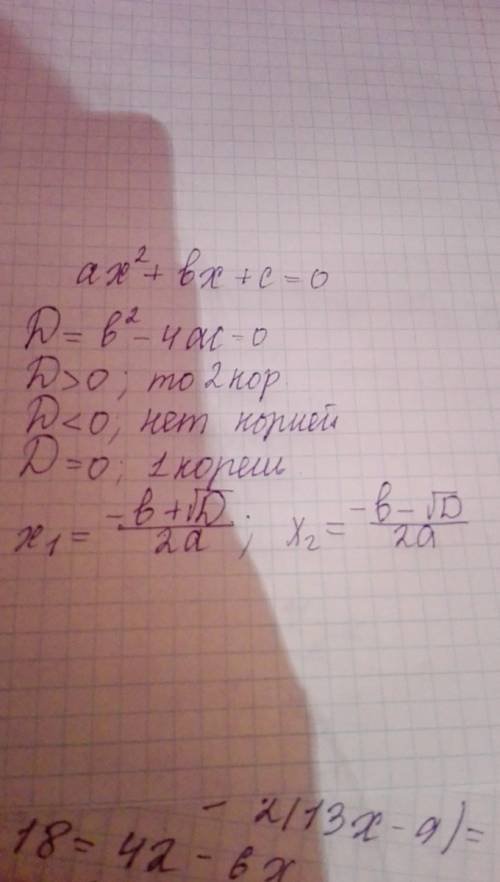 ax² + bx + c = 0
D = b² - 4ac = 0
D > 0; то 2 кор
D < 0; нет корней
D = 0; 1 корень
x₁ = (-b + √D)/2a ; x₂ = (-b - √D)/2a
- 2(13x - 9) =
18 = 42 - 6x